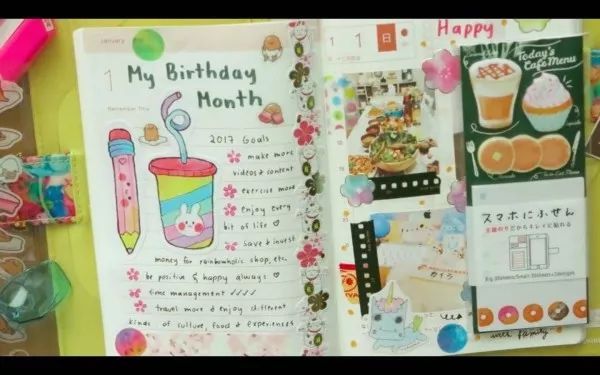 January
1
My Birthday
Month
2017 Goals
make more
videos & content
exercise more
enjoy every
bit of life ♡
save & invest
money for rainbowholic shop, etc.
be positive & happy always ♡
time management ✓✓✓✓
travel more & enjoy different
kinds of culture, food & experiences
1 1 日
Happy
Today's
Cafe Menu
スマホにふせん
全面のりだからキレイに貼れる
with family